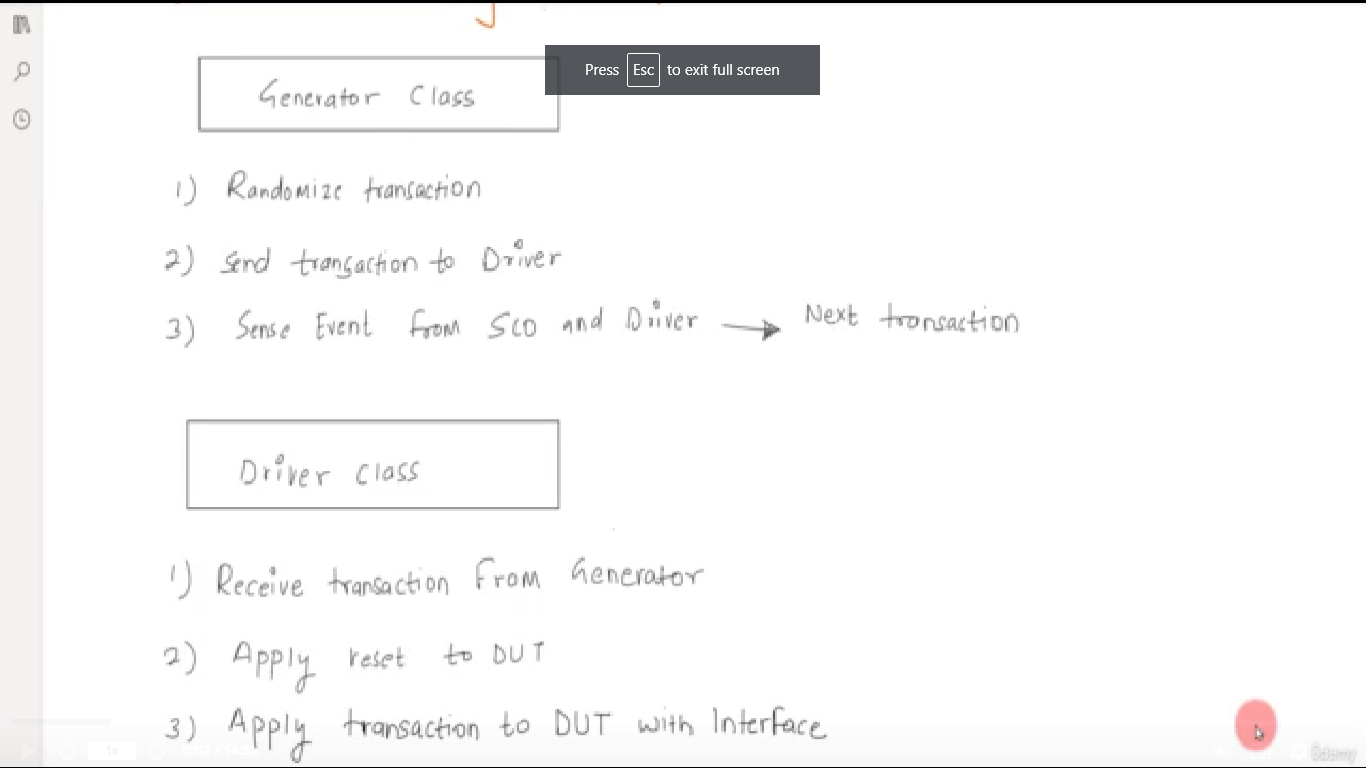 Press Esc to exit full screen
Generator Class
1) Randomize transaction
2) Send transaction to Driver
3) Sense Event from SCO and Driver → Next transaction
Driver class
1) Receive transaction From Generator
2) Apply reset to DUT
3) Apply transaction to DUT with Interface
1x
Udemy